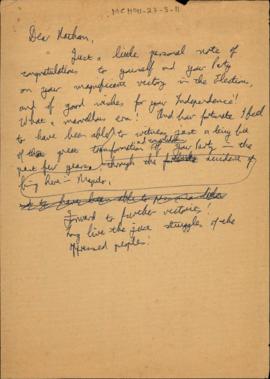 MCH91-27-3-11
Dear Nathan,
Just a little personal note of
congratulations to yourself and your Party
on your magnificent victory in the Elections,
and of good wishes for your Independence!
What a marvellous era! And how fortunate I feel
to have been able to witness just a tiny bit
of the great transformation of your Party in the
past few years, through the accident of
being here in Maputo.
to have been able to
Forward to further victories!
Long live the just struggles of the
oppressed peoples!